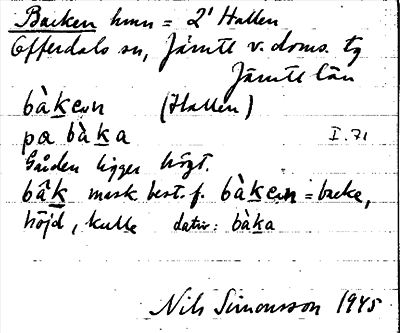 Backen hmn = 2¹ Hallen
Offerdals sn, Jämtl. v. doms. tg
Jämtl län
bàkenn (Hallen)
pa bàka I.71
Gården ligger högt.
bâk mask best. f. bàkenn = backe,
höjd, kulle dativ: bàka
Nils Simonsson 1945